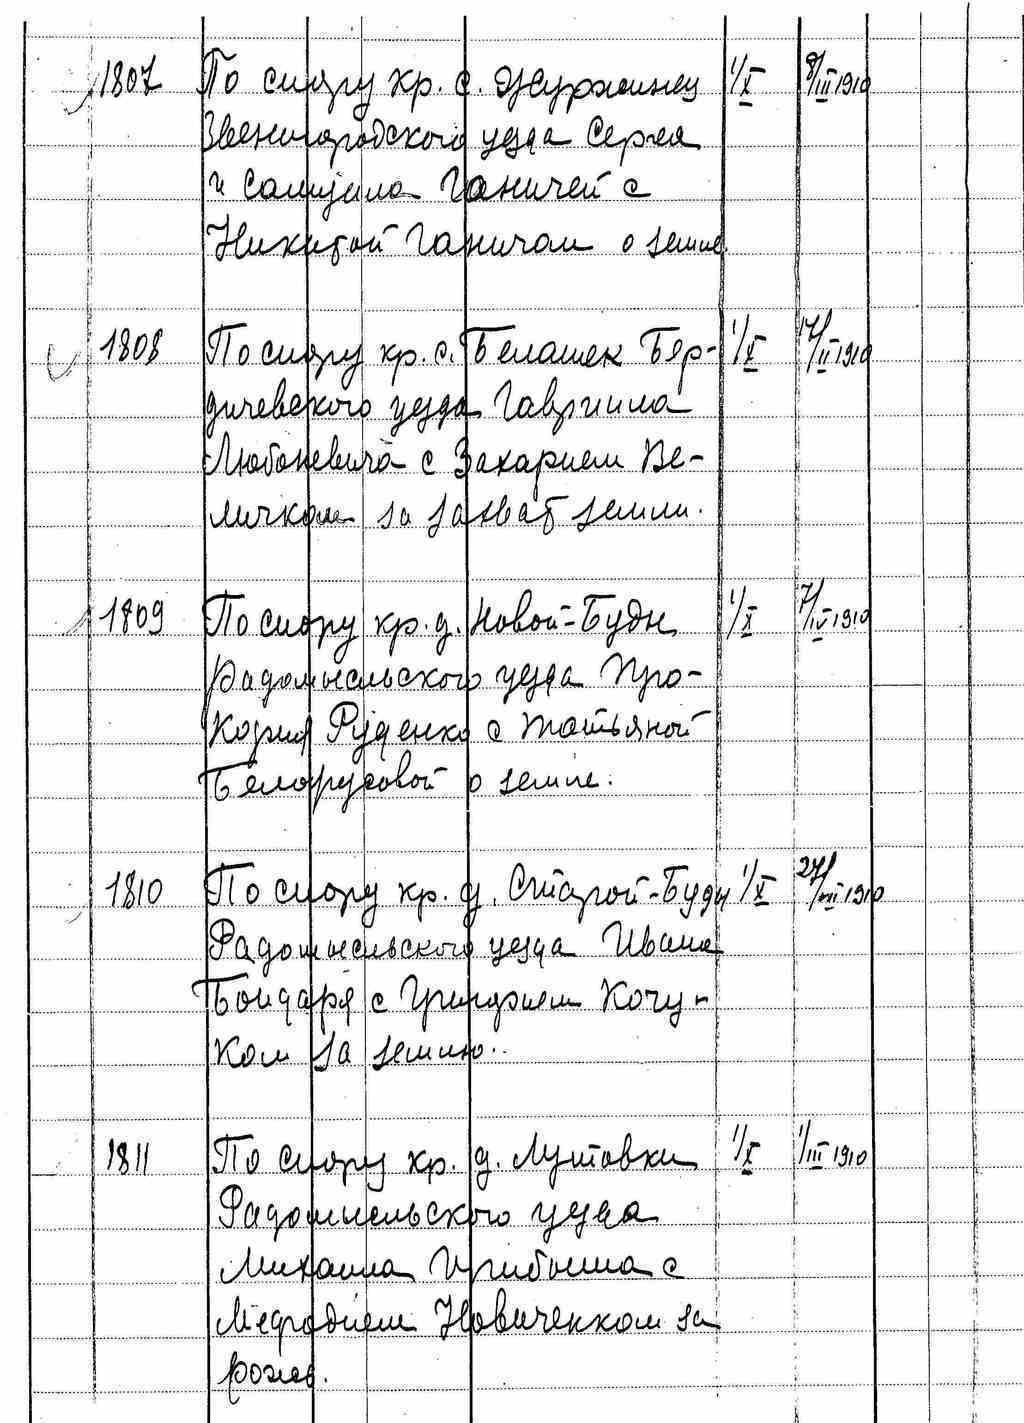 1807 По спору кр. с. Журжинец 1/X 8/III 1910
Звенигородского уезда Сергея
и Самуила Ганичей с
Никитой Ганичом о земле
1808 По спору кр. с. Белашек Бер-
1/X 17/II 1910
дичевского уезда Гавриила
Любоневича с Захарием Ве-
личком за захват земли.
1809 По спору кр. д. Новой-Буды 1/X 7/IV 1910
Радомысльского уезда Про-
Руденко с Татьяной
Белорусовой о земле.
1810 По спору кр. д. Старой-Буды 1/X 27/VII 1910
Радомысльского уезда Ивана
Бондаря с Григорием Кочу-
ком за землю.
1811 По спору кр. д. Лутовки 1/X 1/III 1910
Радомысльского уезда
Михаила с
Мефодием Новиченком за